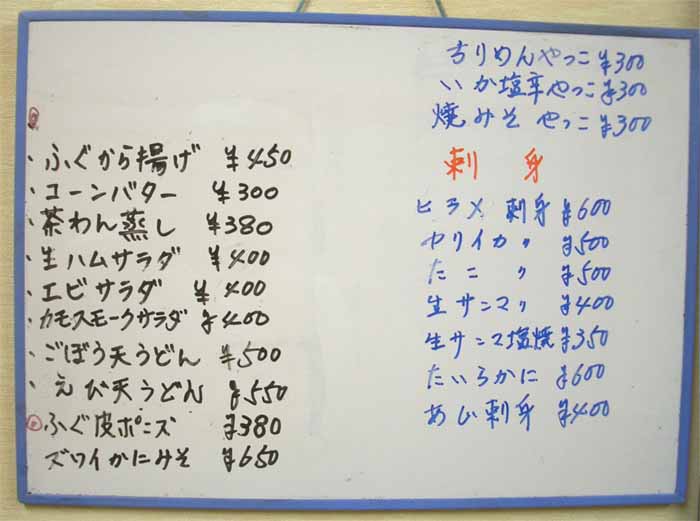 ・ふぐから揚げ ¥450
・コーンバター ¥300
・茶わん蒸し ¥380
・生ハムサラダ ¥400
・エビサラダ ¥400
・カモスモークサラダ ¥400
・ごぼう天うどん ¥500
・えび天うどん ¥550
ふぐ皮ポンズ ¥380
ズワイかにみそ ¥650
ちりめんやっこ ¥300
いか塩辛やっこ ¥300
焼みそやっこ ¥300
刺身
ヒラメ刺身 ¥600
ヤリイカ〃 ¥500
たこ〃 ¥500
生サンマ〃 ¥400
生サンマ塩焼 ¥350
たいろかに ¥600
あじ刺身 ¥400